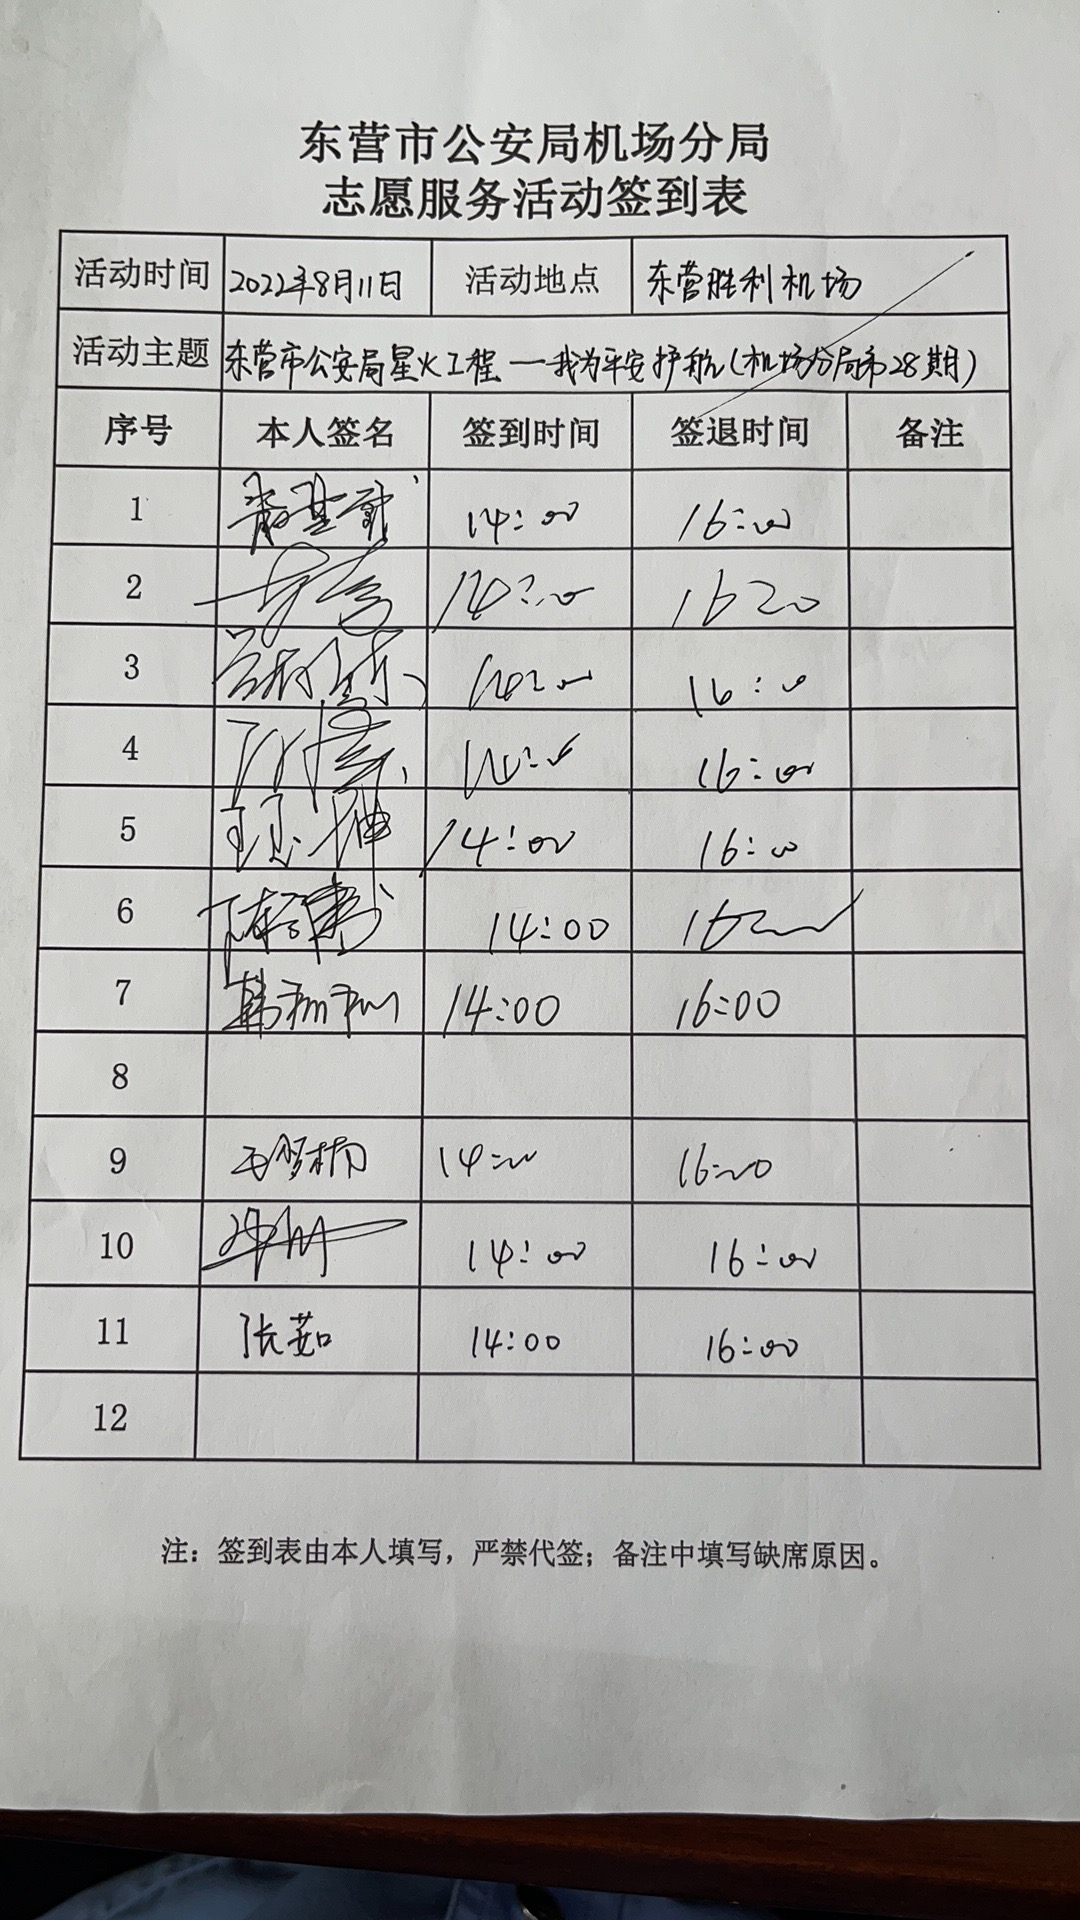 东营市公安局机场分局
志愿服务活动签到表
活动时间 2022年8月11日 活动地点 东营胜利机场
活动主题 东营市公安局星火工程一我为平安护航(机场分局第28期)
序号 本人签名 签到时间 签退时间 备注
1 14:00 16:00
2 14:00
3 14:00 16:00
4 16:00
5 14:00 16:00
6 14:00
7 14:00 16:00
8
9 14:00 16:00
10 14:00 16:00
11 张茹 14:00 16:00
12
注：签到表由本人填写，严禁代签；备注中填写缺席原因。